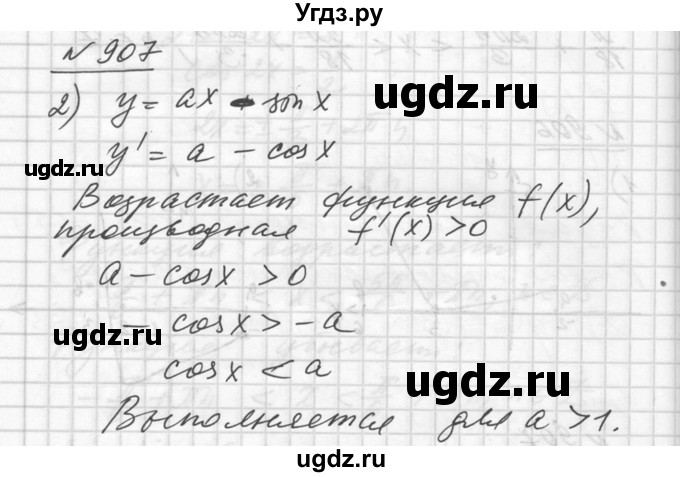 Угдз.ру
№ 907
2) y = ax - sin x
ugdz.ru
y' = a - cos x
ugdz.ru
Возрастает функция f(x),
производная f'(x) > 0
ugdz.ru
a - cos x > 0
ugdz.ru
- cos x > - a
cos x < a
ugdz.ru
Выполняется для a > 1.
ugdz.ru